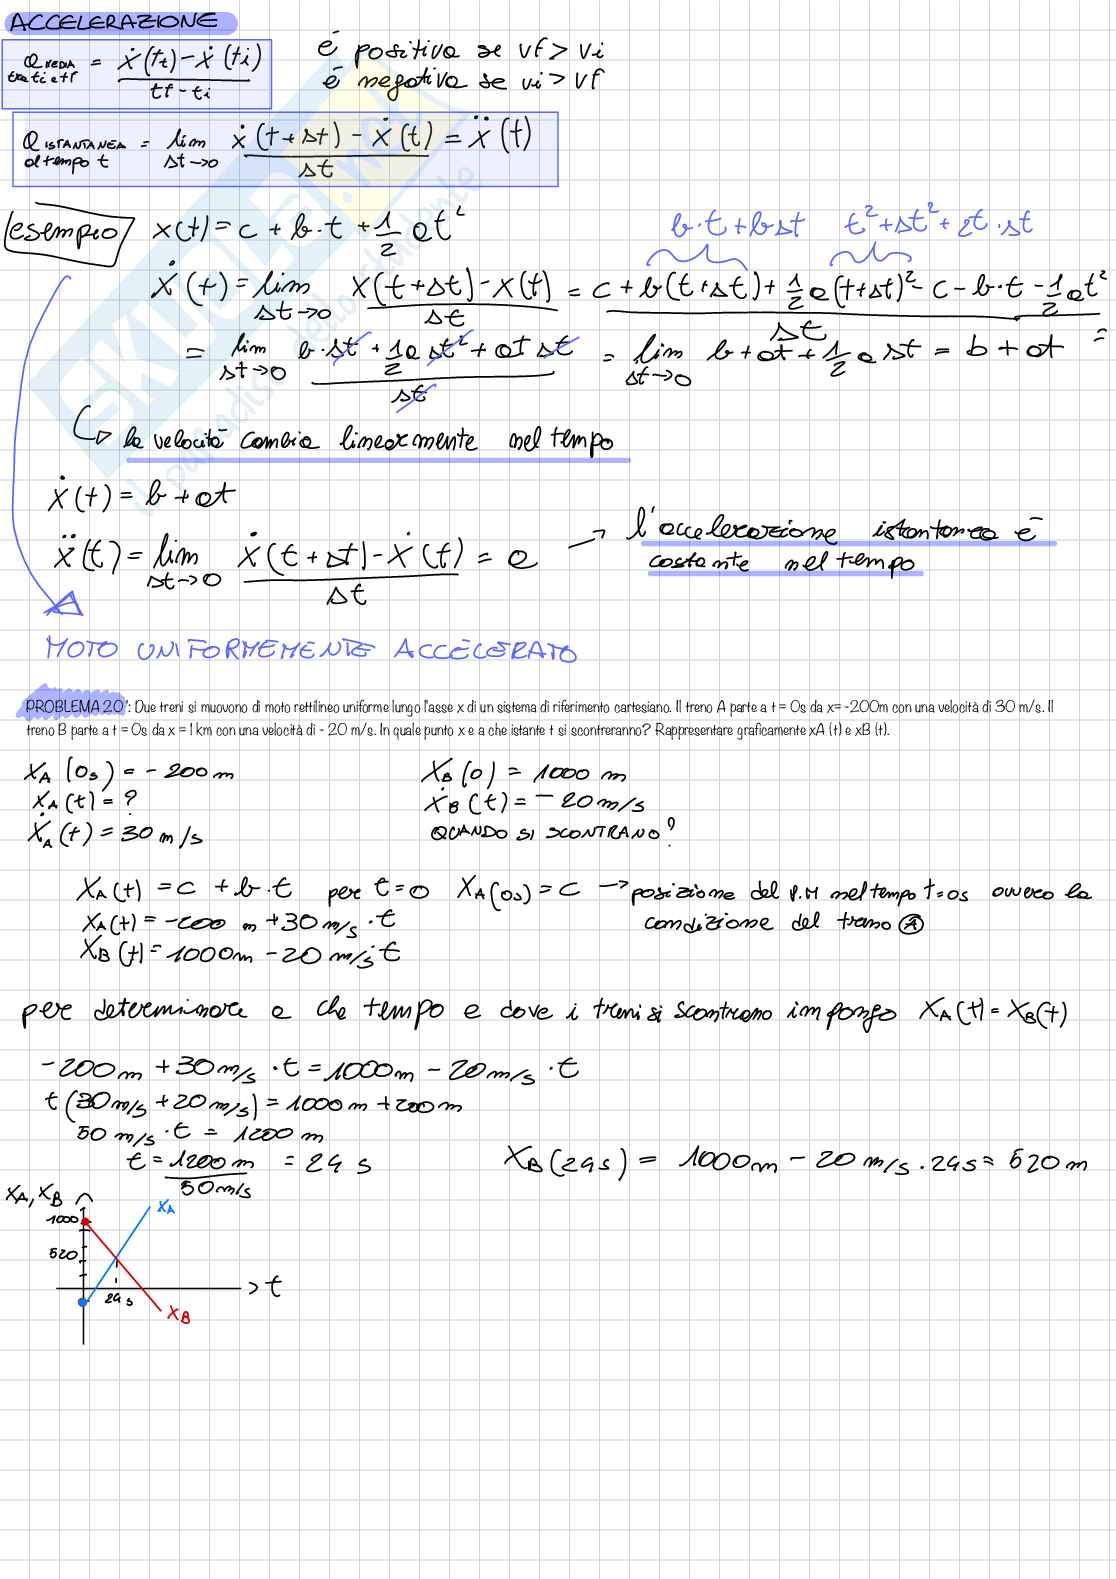 ACCELERAZIONE
a MEDIA tra ti e tf = ẋ(tf) - ẋ(ti) / tf - ti
é positiva se vf > vi
é negativa se vi > vf
a ISTANTANEA al tempo t = lim Δt→0 ẋ(t+Δt) - ẋ(t) / Δt = ẍ(t)
esempio x(t) = c + b·t + 1/2 at²
b·t + bΔt t² + Δt² + 2t·Δt
ẋ(t) = lim Δt→0 x(t+Δt) - x(t) / Δt = c + b(t+Δt) + 1/2 a(t+Δt)² - c - b·t - 1/2 at² / Δt =
= lim Δt→0 b·Δt + 1/2 a Δt² + at Δt / Δt = lim Δt→0 b + at + 1/2 a Δt = b + at
↳ la velocità cambia linearmente nel tempo
ẋ(t) = b + at
ẍ(t) = lim Δt→0 ẋ(t+Δt) - ẋ(t) / Δt = a → l'accelerazione istantanea é
costante nel tempo
MOTO UNIFORMEMENTE ACCELERATO
PROBLEMA 2.0': Due treni si muovono di moto rettilineo uniforme lungo l'asse x di un sistema di riferimento cartesiano. Il treno A parte a t = 0s da x= -200m con una velocità di 30 m/s. Il
treno B parte a t = 0s da x = 1 km con una velocità di - 20 m/s. In quale punto x e a che istante t si scontreranno? Rappresentare graficamente xA (t) e xB (t).
XA (0s) = -200 m XB (0) = 1000 m
XA (t) = ? ẊB (t) = -20 m/s
ẊA (t) = 30 m/s QUANDO SI SCONTRANO?
XA(t) = c + b·t per t=0 XA(0s) = c → posizione del P.M nel tempo t=0s ovvero la
XA(t) = -200 m + 30 m/s · t condizione del treno A
XB (t) = 1000m - 20 m/s·t
per determinare a che tempo e dove i treni si scontrano impongo XA(t) = XB(t)
-200m + 30 m/s · t = 1000m - 20 m/s · t
t (30 m/s + 20 m/s) = 1000 m + 200 m
50 m/s · t = 1200 m
t = 1200 m / 50 m/s = 24 s XB (24s) = 1000m - 20 m/s · 24s = 520 m
XA, XB
XA
1000
520
24 s
t
XB